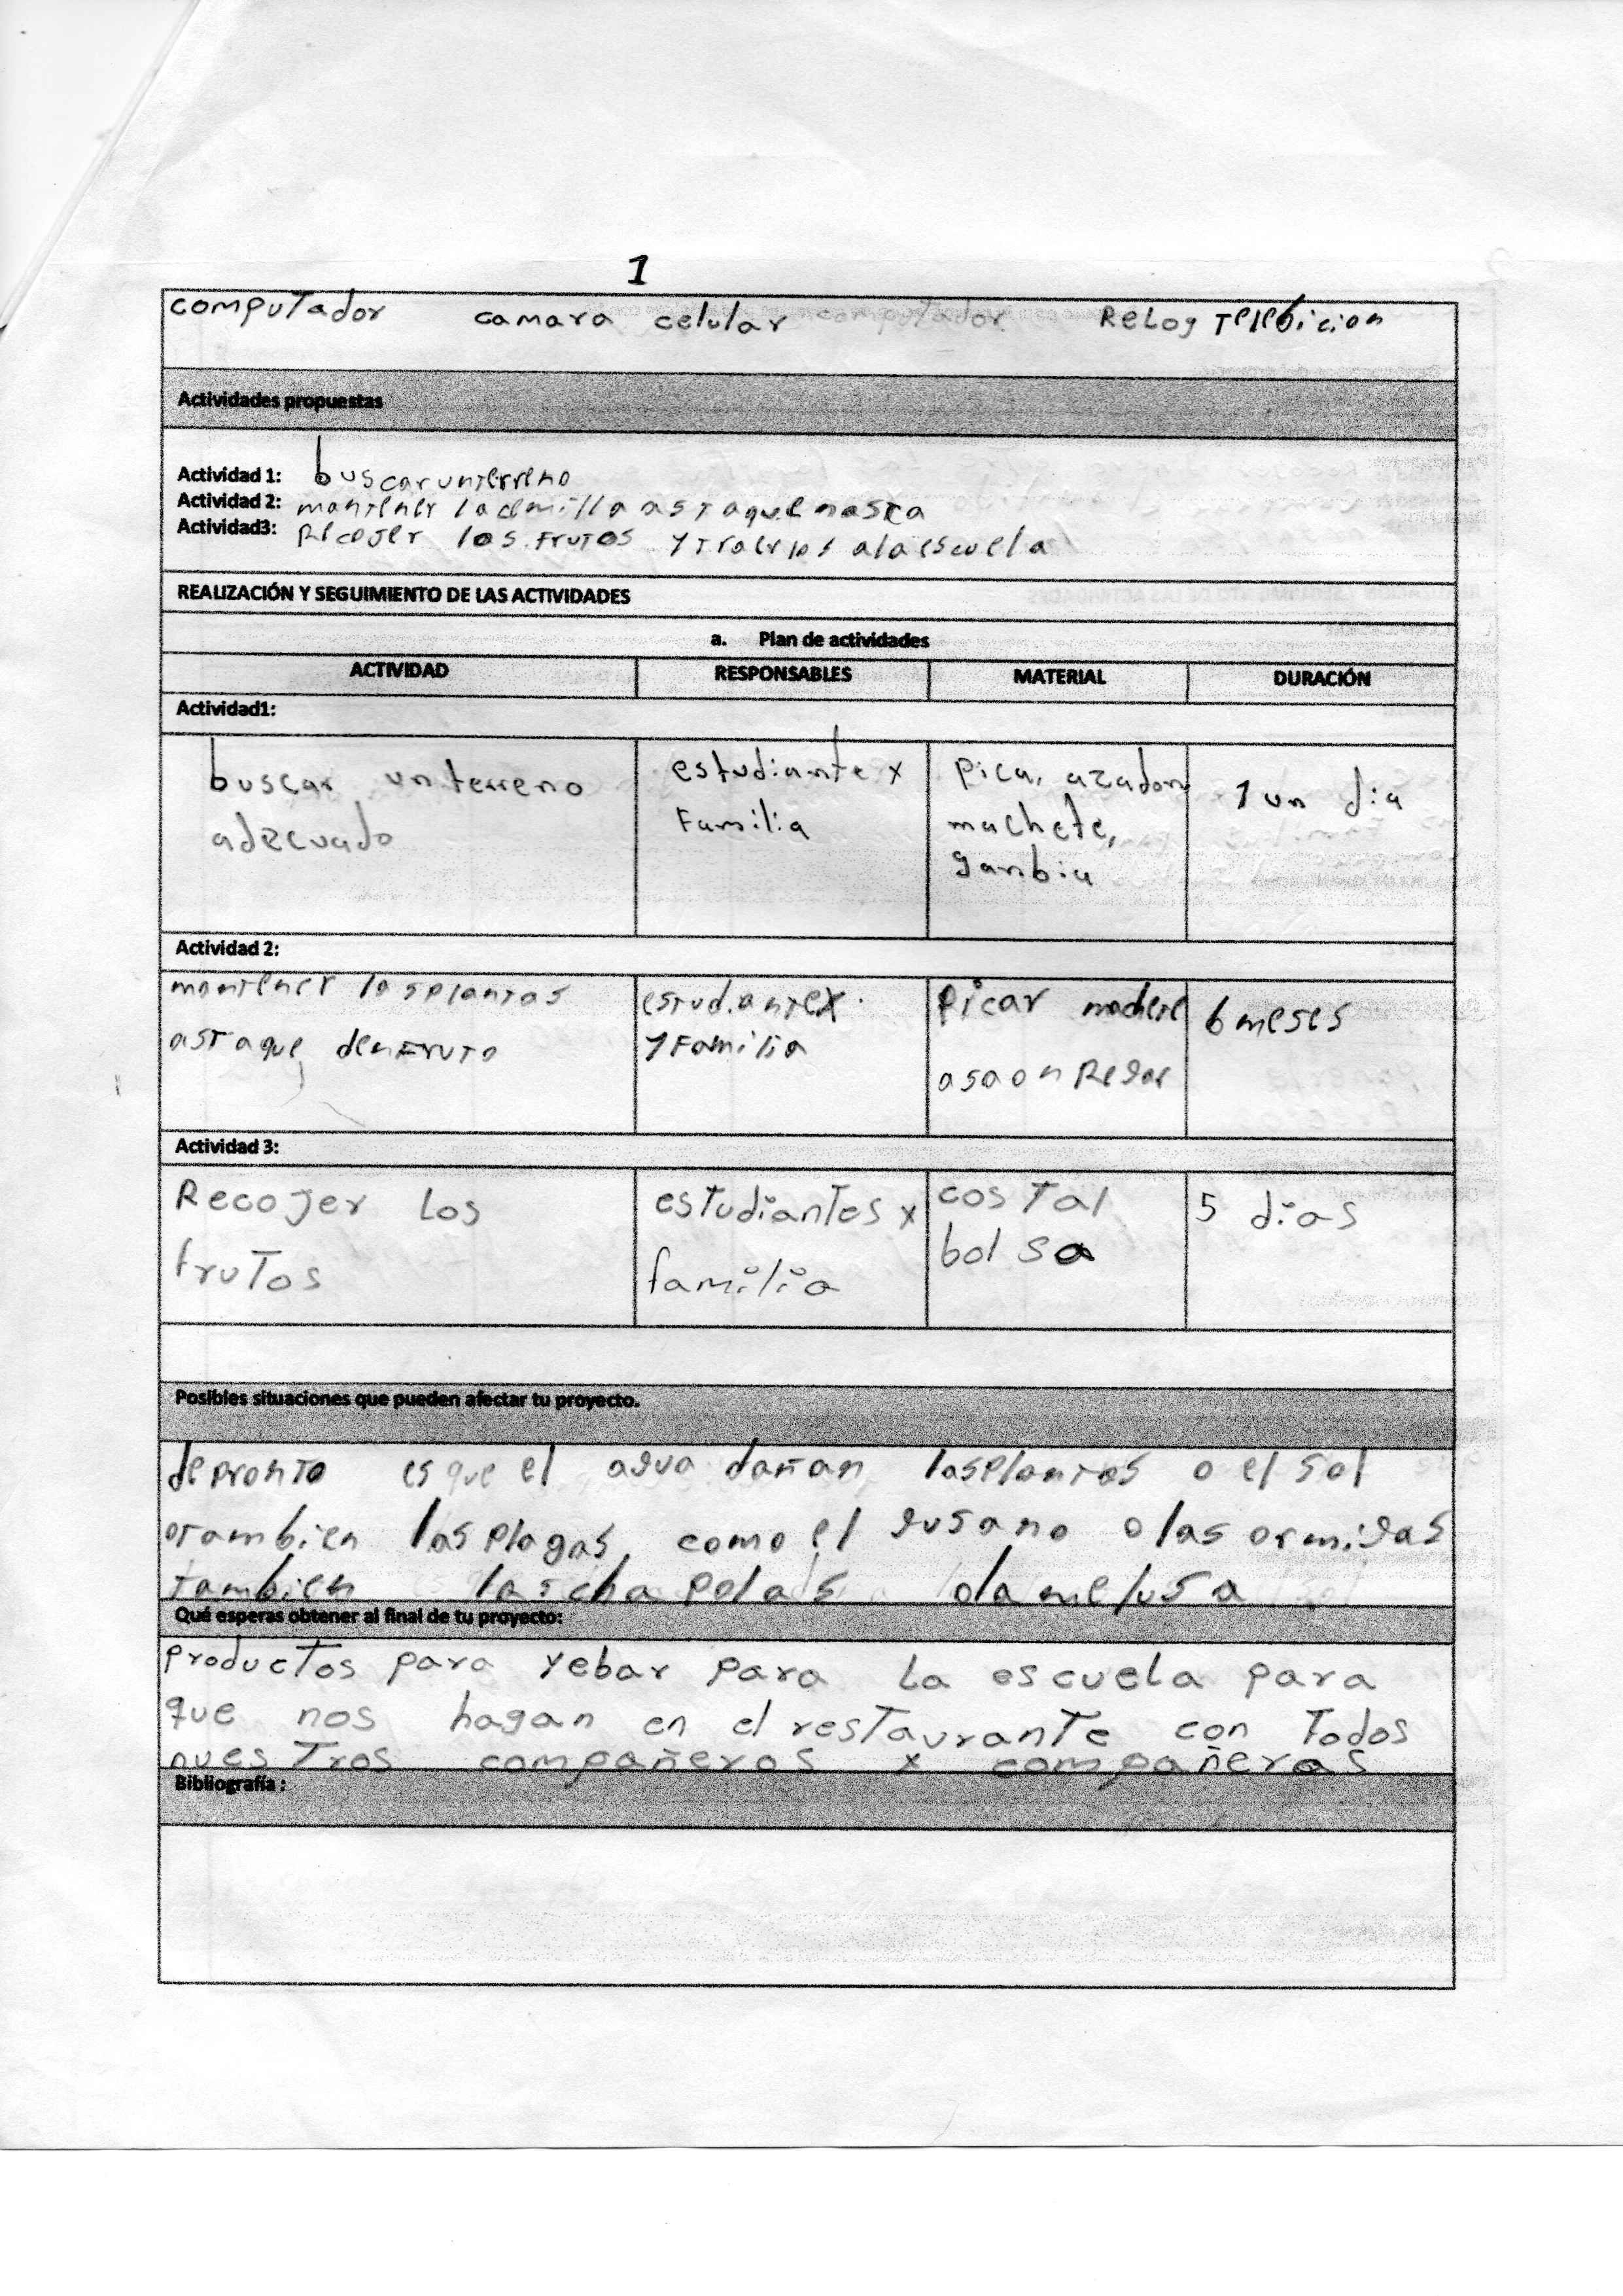 1
computador camara celular computador ReLog Telebicion
Actividades propuestas
Actividad 1: buscar unterreno
Actividad 2: mantener lacemilla astaque nasca
Actividad3: Recojer los frutos y traerlos alaescuela
REALIZACIÓN Y SEGUIMIENTO DE LAS ACTIVIDADES
a. Plan de actividades
ACTIVIDAD RESPONSABLES MATERIAL DURACIÓN
Actividad1:
buscar unterreno estudiante x pica, azadon 1 un dia
adecuado familia machete,
ganbia
Actividad 2:
mantener lasplantas estudiantex picar machete 6 meses
astaque denfruto yfamilia asaon Regar
Actividad 3:
Recojer Los estudiantes x costal 5 dias
frutos familia bolsa
Posibles situaciones que pueden afectar tu proyecto.
depronto es que el agua dañan lasplantas o el sol
otambien lasplagas, como el gusano olas ormigas
tambien laschapolas olamelusa
Qué esperas obtener al final de tu proyecto:
productos para yebar para La escuela para
que nos hagan en el restaurante con todos
nuestros compañeros x compañeras
Bibliografía :